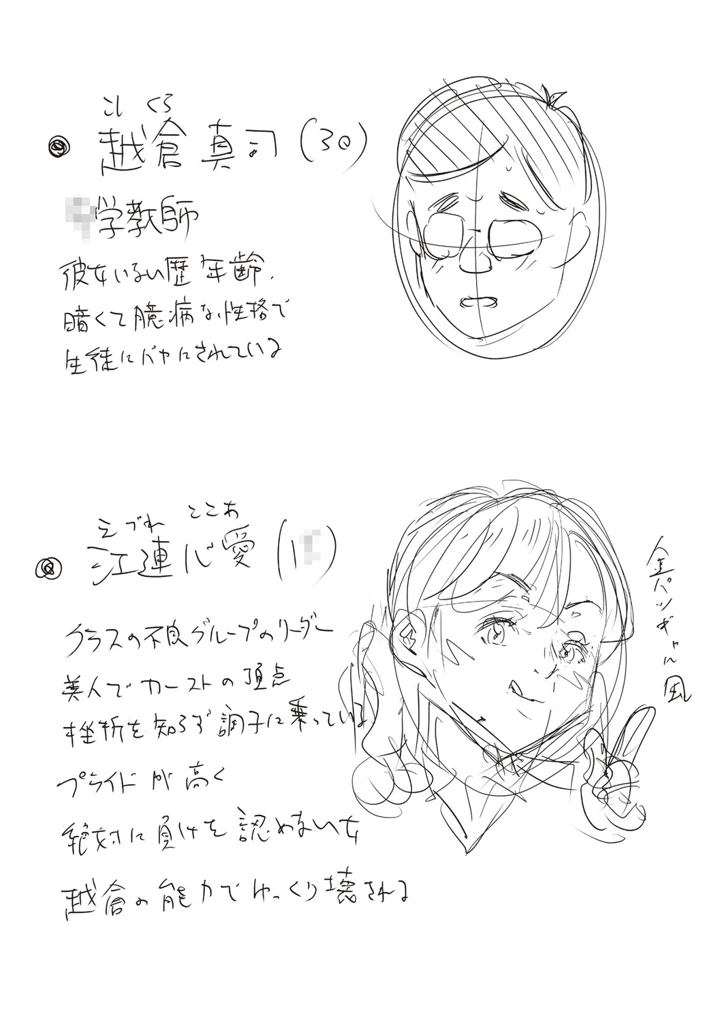 こし くら
越倉 真司 (30)
学教師
彼女いない歴年齢、
暗くて臆病な性格で
生徒にバカにされている
えづれ ここあ
江連心愛 (1
クラスの不良グループのリーダー
美人でカーストの頂点
挫折を知らず調子に乗っている
プライドが高く
絶対に負けを認めない女
越倉の能力でゆっくり壊される
金パツギャル風